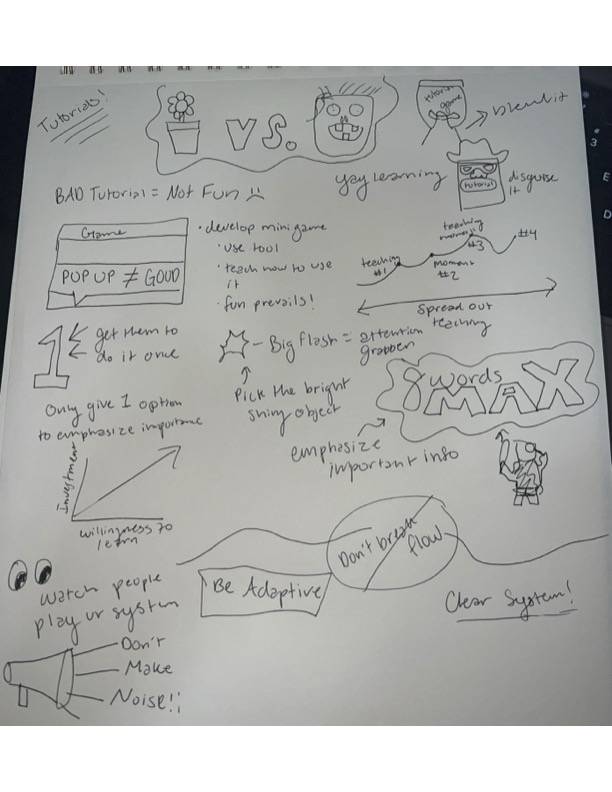 Tutorials!
VS.
tutorial
game
blend it
BAD Tutorial = Not Fun
yay learning
tutorial
disguise
it
Game
POP UP ≠ GOOD
• develop mini game
• use tool
• teach how to use
it
• fun prevails!
teaching
#1
moment
#2
teaching
#3
#4
Spread out
teaching
1
get them to
do it once
Only give 1 option
to emphasize importance
- Big flash = attention
grabber
Pick the bright
shiny object
8 words
MAX
emphasize
important info
Investment
willingness to
learn
Don't break
flow
Be Adaptive
Clear System!
Watch people
play ur system
Don't
Make
Noise!!